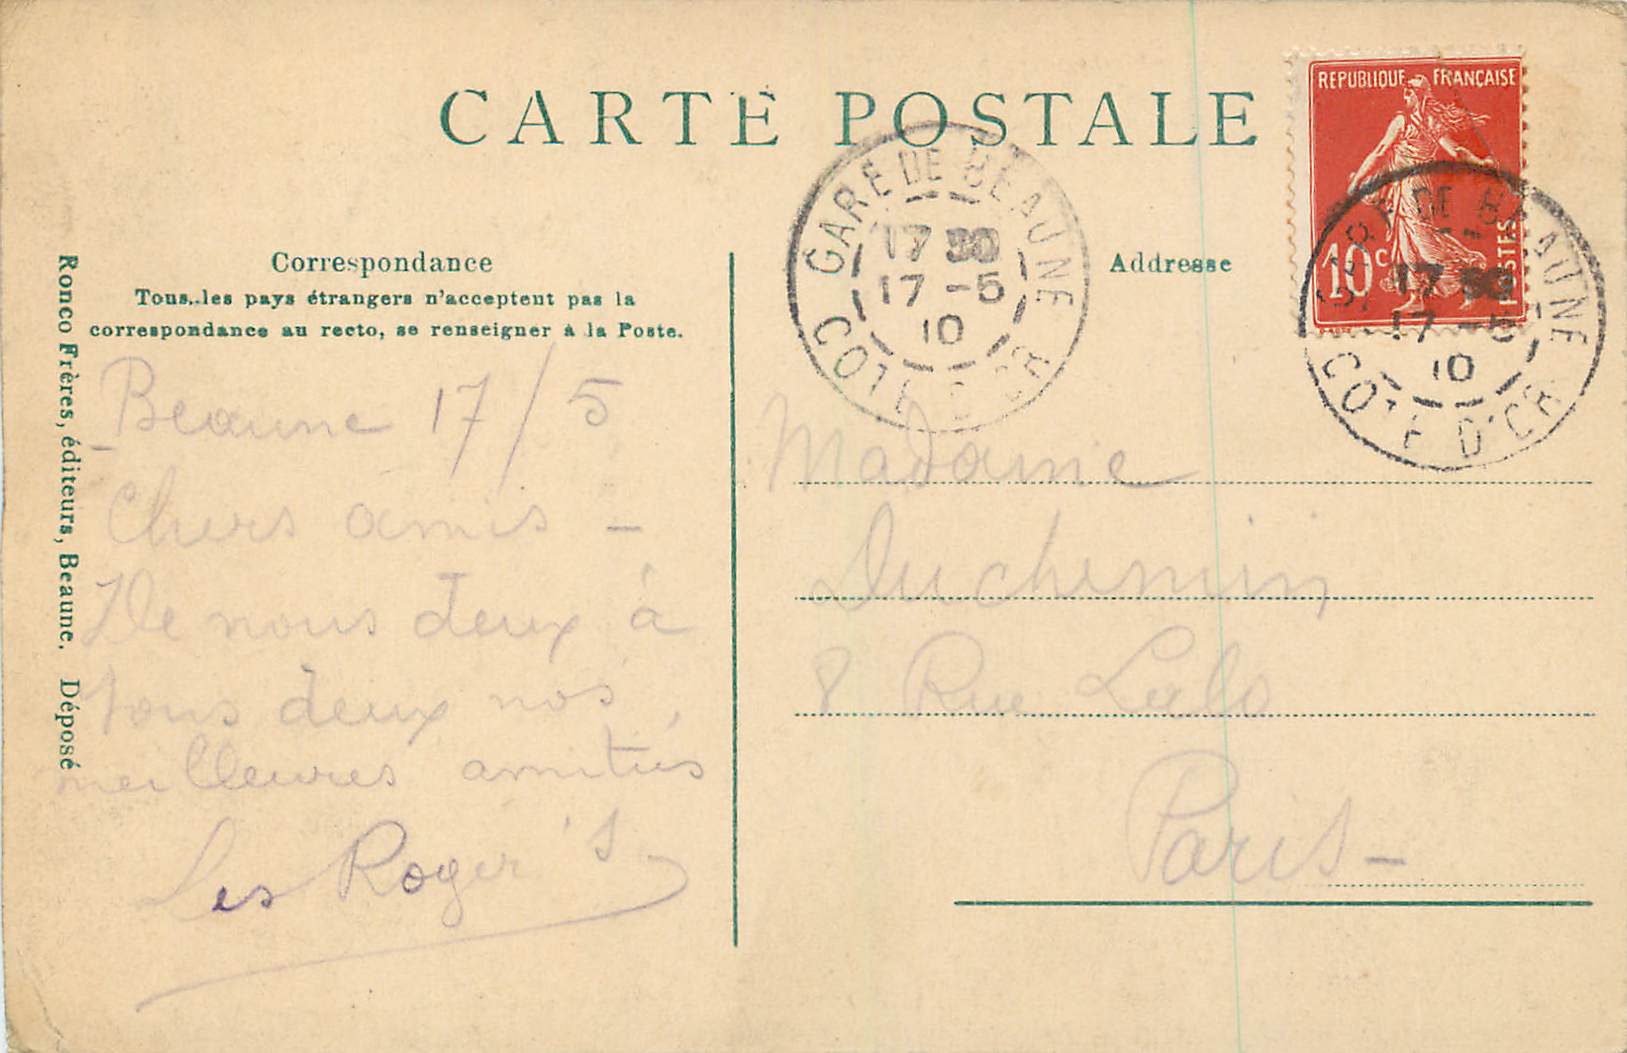 CARTE POSTALE
REPUBLIQUE FRANÇAISE
10c
POSTES
GARE DE BEAUNE
17 30
17 -5
10
COTE D'OR
GARE DE BEAUNE
17 30
17 -5
10
COTE D'OR
Correspondance
Tous..les pays étrangers n'acceptent pas la
correspondance au recto, se renseigner à la Poste.
Addresse
Ronco Frères, éditeurs, Beaune. Déposé
Beaune 17/5
Chers amis -
De nous deux à
tous deux nos
meilleures amitiés
Les Roger's
Madame
Duchemin
8 Rue Lalo
Paris -